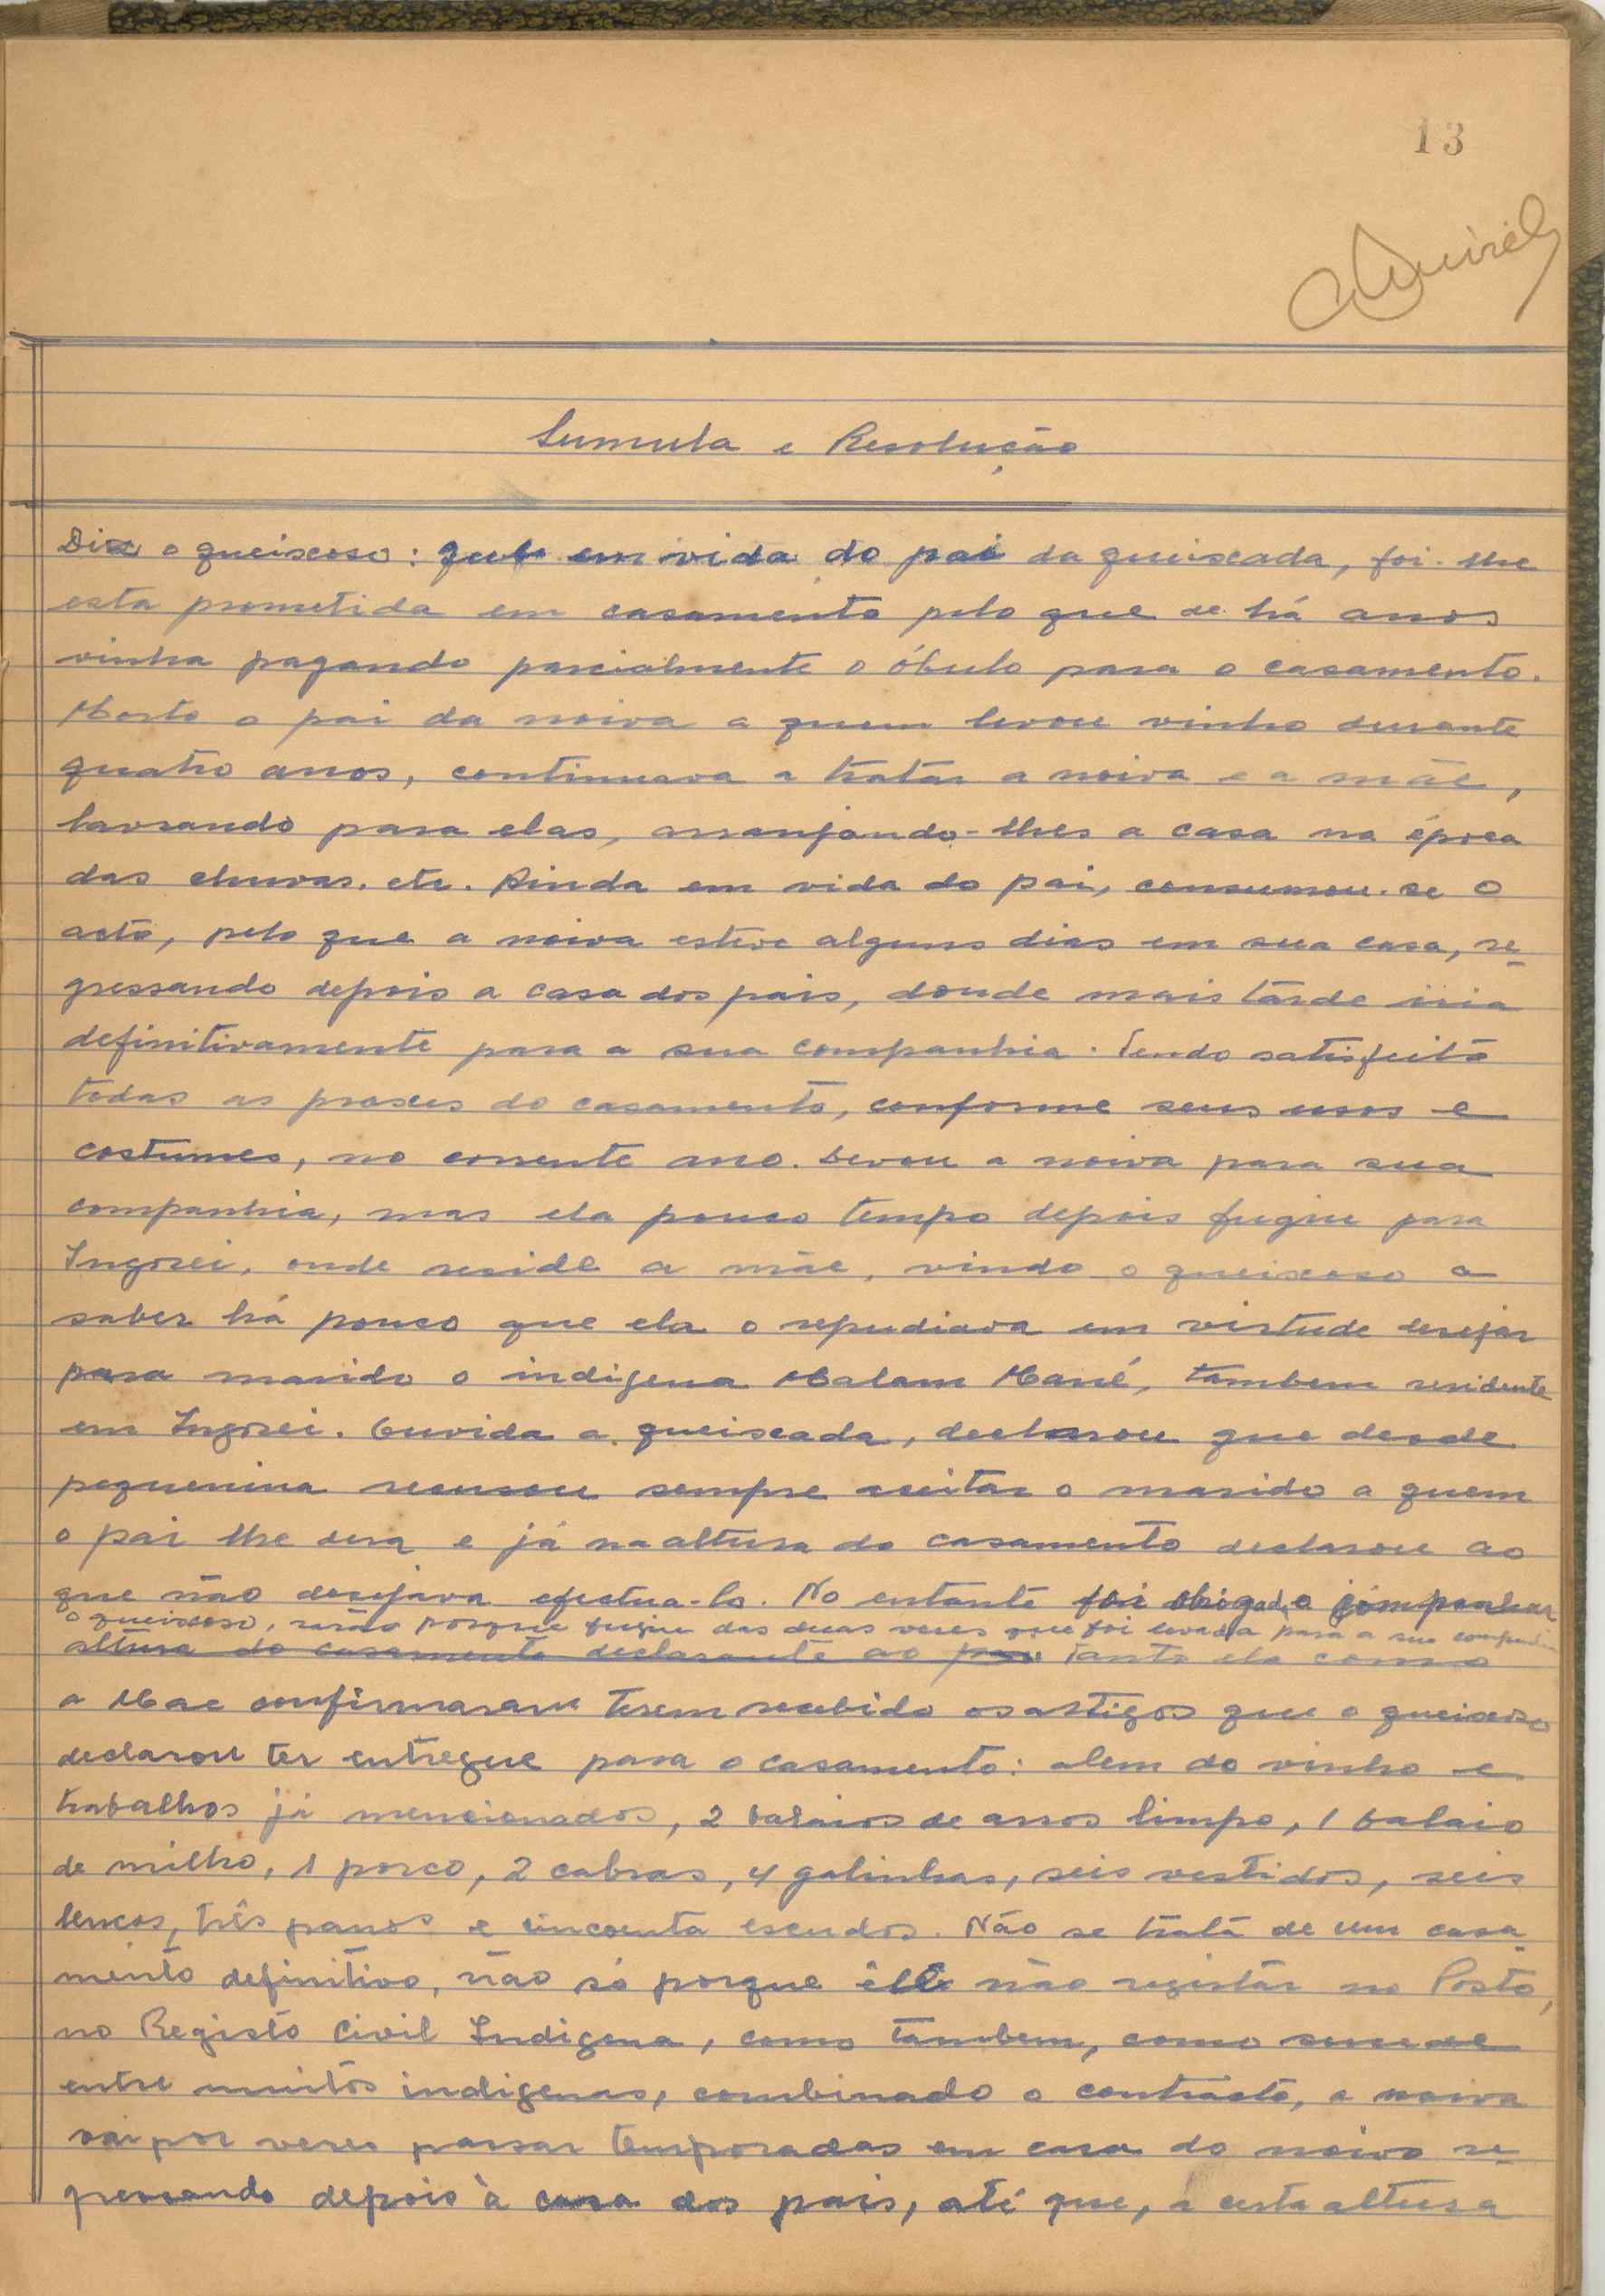 13
Sumula e Resolução
Diz o queixoso: que em vida do pai da queixada, foi-lhe
esta prometida em casamento pelo que de há anos
vinha pagando parcialmente o óbulo para o casamento.
Morto o pai da noiva a quem levou vinho durante
quatro anos, continuava a tratar a noiva e a mãe,
lavrando para elas, arranjando-lhes a casa na época
das chuvas. etc. Ainda em vida do pai, consumou-se o
acto, pelo que a noiva esteve alguns dias em sua casa, re-
gressando depois a casa dos pais, donde mais tarde iria
definitivamente para a sua companhia. Tendo satisfeito
todas as praxes do casamento, conforme seus usos e
costumes, no corrente ano. Levou a noiva para sua
companhia, mas ela pouco tempo depois fugiu para
Ingorei, onde reside a mãe, vindo o queixoso a
saber há pouco que ela o repudiava em virtude desejar
para marido o indigena Malam Mané, tambem residente
em Ingorei. Ouvida a queixada, declarou que desde
pequenina recusou sempre aceitar o marido a quem
o pai lhe dera e já na altura do casamento declarou ao
que não desejava efectua-lo. No entanto foi obrigada a companhar
o queixoso, razão porque fugiu das duas vezes que foi levada para a sua companhia
altura do casamento declarante ao pai. Tanto ela como
a Mãe confirmaram terem recebido os artigos que o queixoso
declarou ter entregue para o casamento: alem do vinho e
trabalhos já mencionados, 2 balaios de arros limpo, 1 balaio
de milho, 1 porco, 2 cabras, 4 galinhas, seis vestidos, seis
lenços, três panos e cincoenta escudos. Não se trata de um casa-
mento definitivo, não só porque êle não registar no Posto,
no Registo Civil Indigena, como tambem, como sucede
entre muitos indigenas, combinado o contracto, a noiva
vai por vezes passar temporadas em casa do noivo re-
gressando depois à casa dos pais, até que, a certa altura